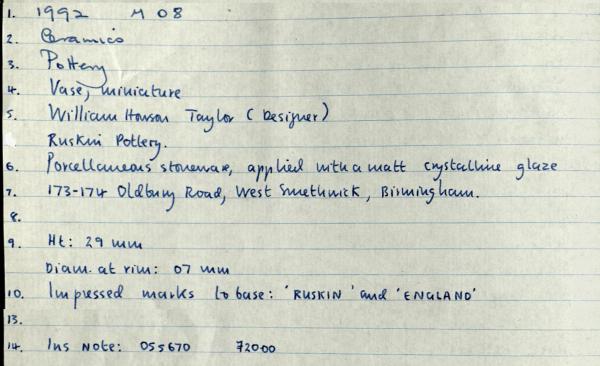 1. 1992 M 08
2. Ceramics
3. Pottery
4. Vase, miniature
5. William Howson Taylor (Designer)
Ruskin Pottery.
6. Porcellaneous stoneware, applied with a matt crystalline glaze
7. 173-174 Oldbury Road, West Smethwick, Birmingham.
8.
9. Ht: 29 mm
Diam. at rim: 07 mm
10. Impressed marks to base: 'RUSKIN' and 'ENGLAND'
13.
14. Ins Note: 055670 72000